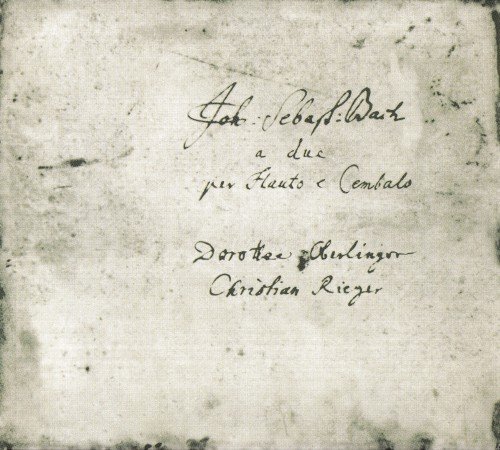 Joh: Sebast: Bach
a due
per Flauto e Cembalo
Dorothee Oberlinger
Christian Rieger